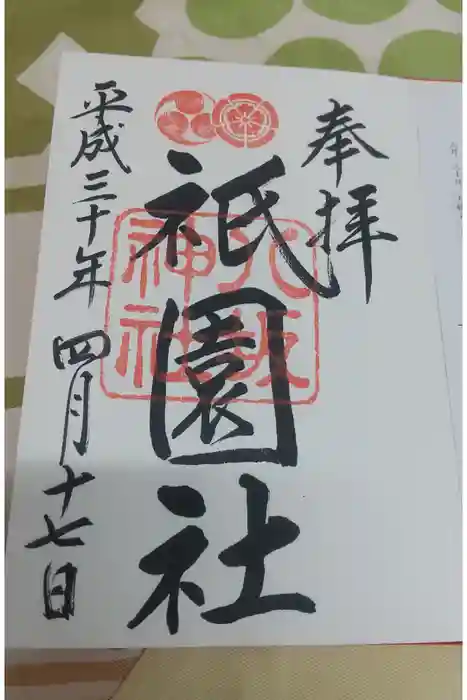 奉拝
祇園社
八坂神社
平成三十年四月十七日